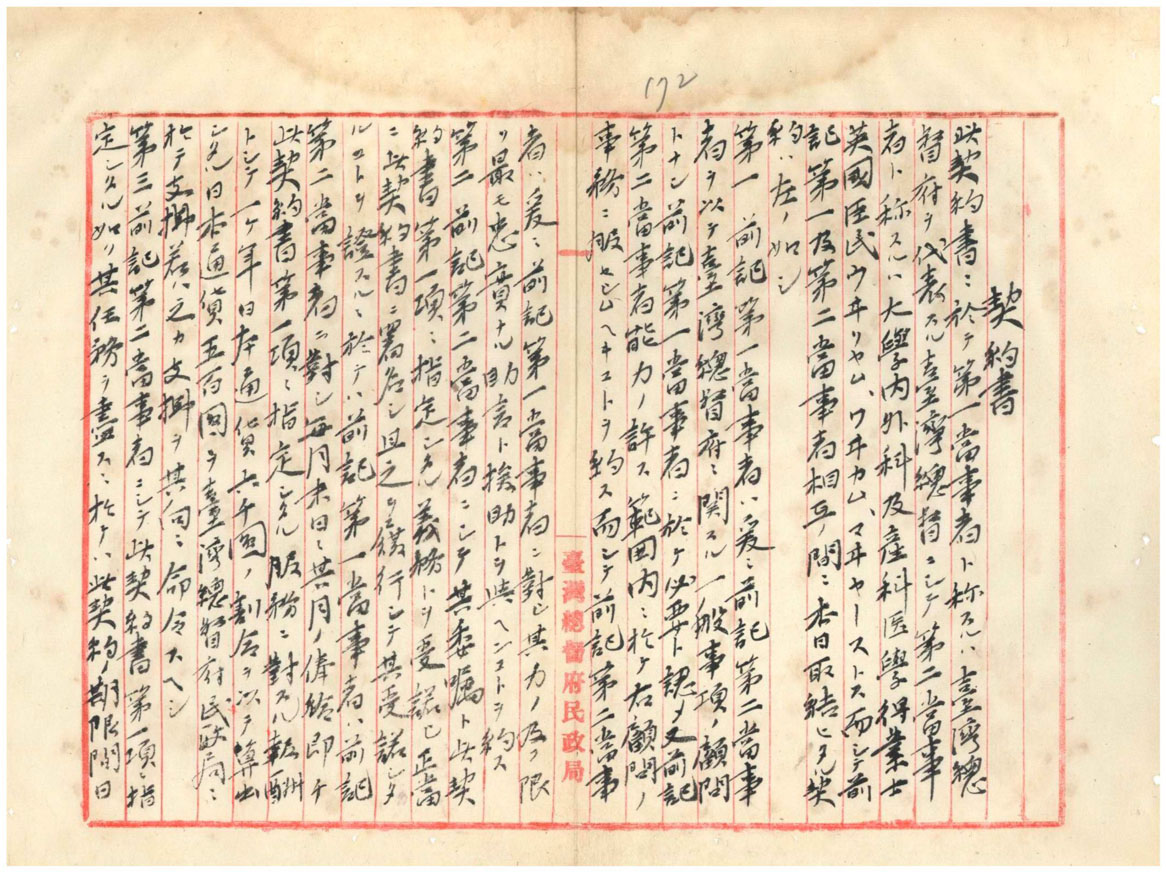 172
契約書
此契約書ニ於テ第一當事者ト称スルハ臺灣總
督府ヲ代表スル臺灣總督ニシテ第二當事
者ト称スルハ大學内外科及産科医學得業士
英國臣民ウヰリヤム、ワヰカム、マヰヤーストス而シテ前
記第一及第二當事者相互ノ間ニ本日取結ヒタル契
約ハ左ノ如シ
第一 前記第一當事者ハ爰ニ前記第二當事
者ヲ以テ臺灣總督府ニ関スル一般事項ノ顧問
トナシ前記第一當事者ニ於ケ必要ト認メ又前記
第二當事者能力ノ許ス範囲内ニ於ケ右顧問ノ
事務ニ服セシムヘキコトヲ約ス而シテ前記第二當事
臺灣總督府民政局
者ハ爰ニ前記第一當事者ニ對シ其力ノ及フ限
リ最モ忠實ナル助言ト挨助トヲ與ヘンコトヲ約ス
第二 前記第二當事者ニシテ其委囑ト此契
約書第一項ニ指定シタル義務トヲ受諾シ正當
ニ此契約書ニ署名シ且之ヲ履行シテ其受諾シタ
ルコトヲ證スルニ於テハ前記第一當事者ハ前記
第二當事者ニ對シ毎月末日ニ其月ノ俸給即チ
此契約書第一項ニ指定シタル服務ニ對スル報酬
トシテ一ケ年日本通貨六千圓ノ割合ヲ以テ算出
シタル日本通貨五百圓ヲ臺灣總督府民政局ニ
於テ支拂若ハ之カ支拂ヲ其向ニ命令スヘシ
第三 前記第二當事者ニシテ此契約書第一項ニ指
定シタル如リ其任務ヲ盡スニ於テハ此契約ノ期限間日